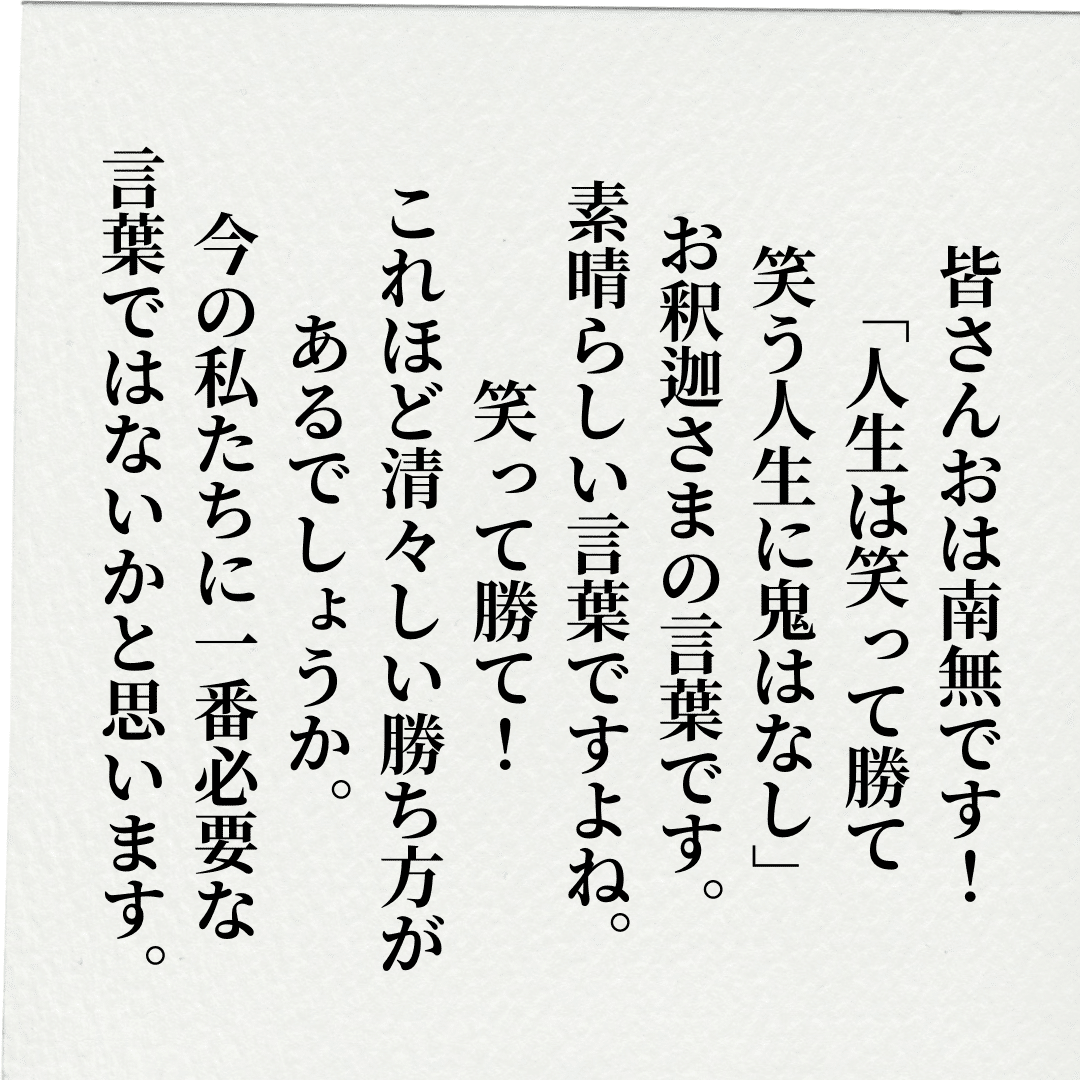 皆さんおは南無です！
「人生は笑って勝て
笑う人生に鬼はなし」
お釈迦さまの言葉です。
素晴らしい言葉ですよね。
笑って勝て！
これほど清々しい勝ち方が
あるでしょうか。
今の私たちに一番必要な
言葉ではないかと思います。